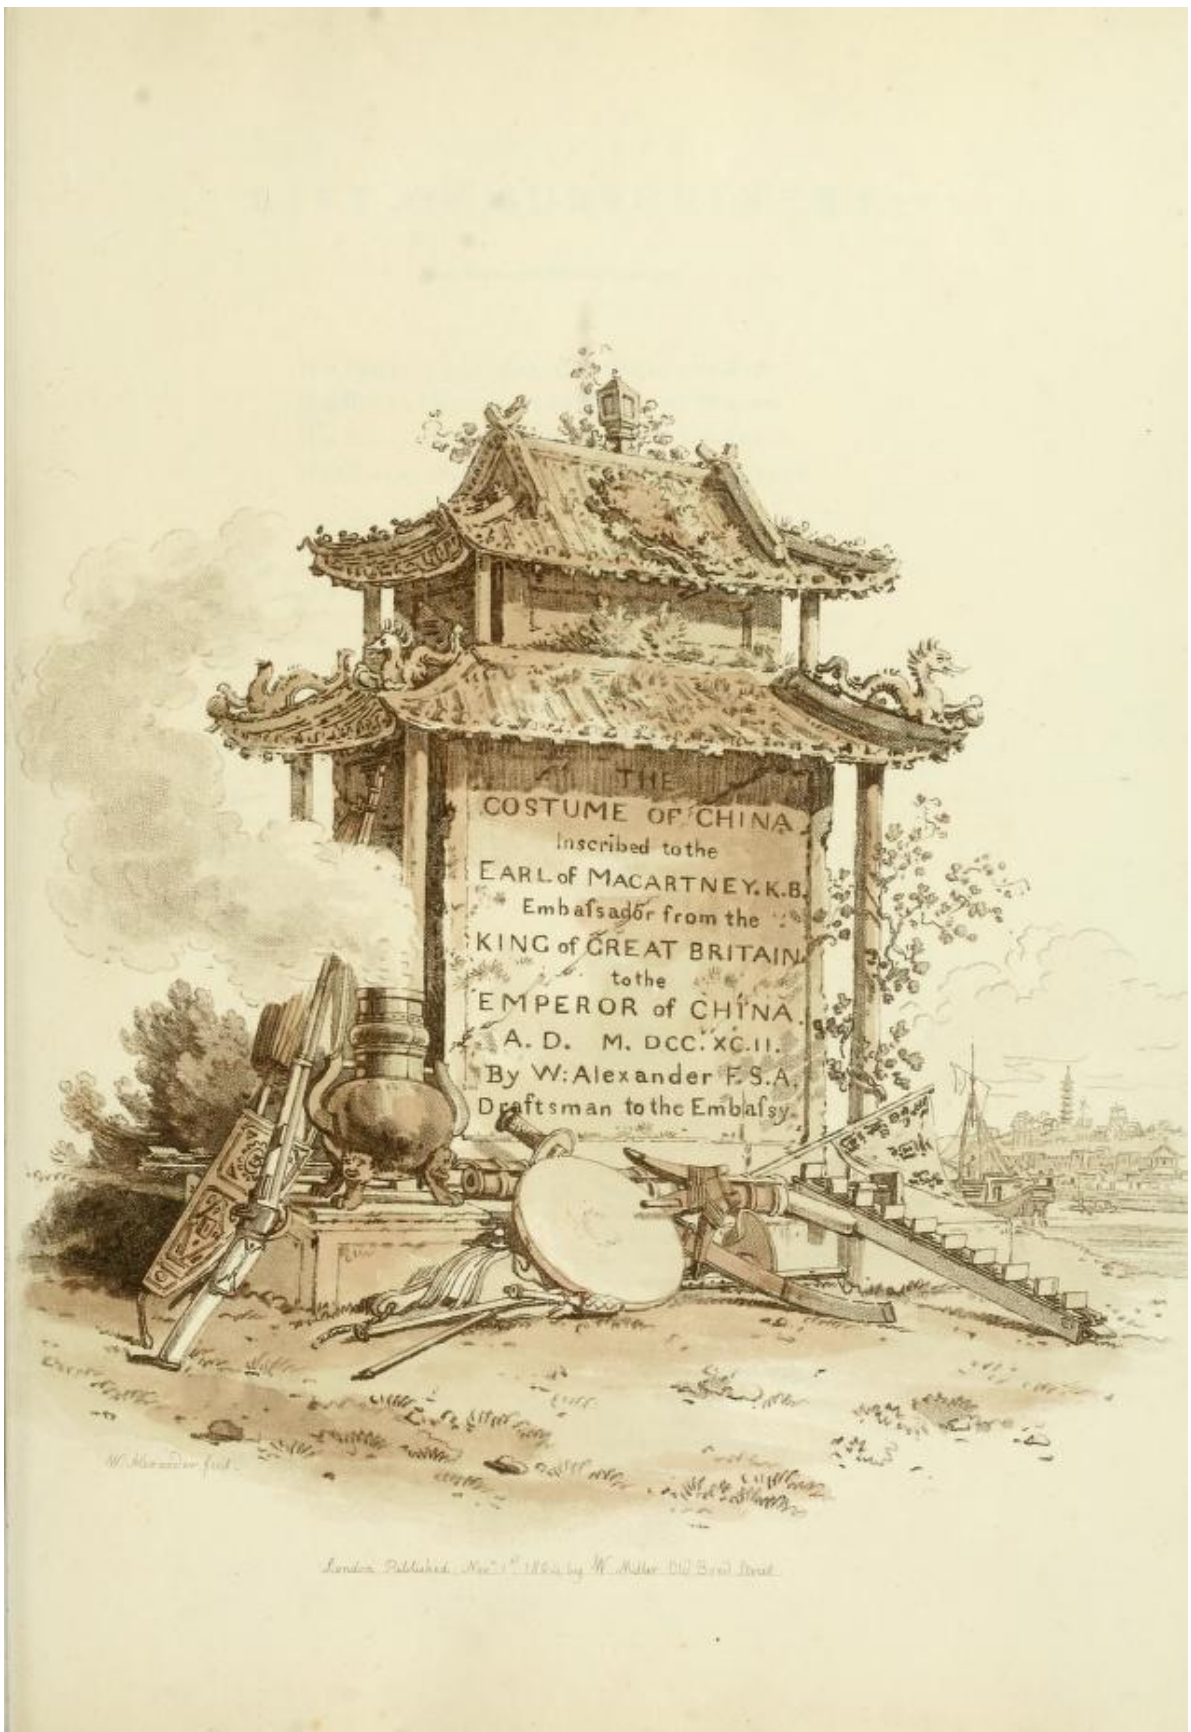 THE
COSTUME OF CHINA
Inscribed to the
EARL of MACARTNEY. K.B.
Embaſsador from the
KING of GREAT BRITAIN
to the
EMPEROR of CHINA.
A. D. M. DCC. XC.II.
By W: Alexander F.S.A.
Draftsman to the Embaſsy.
W. Alexander fecit.
London Published Novr 1st by W. Miller Old Bond Street